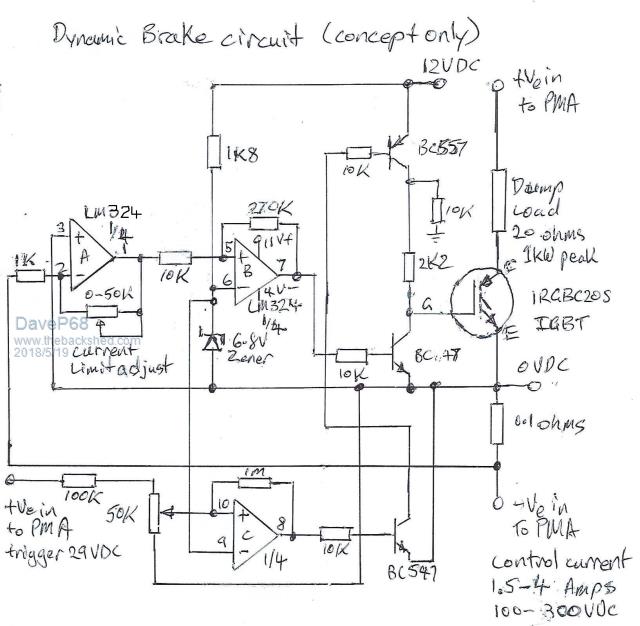 Dynamic Brake circuit (concept only)
12VDC
+Ve in
to PMA
1K8
BC557
10K
10K
LM324
1/4
270K
3
+
A
2
-
1
1K
10K
5
+
B
6
-
7
9
11V+
4V-
LM324
1/4
2K2
Dump
Load
20 ohms
1KW peak
G
IRGBC20S
IGBT
0-50K
current
Limit adjust
DaveP68
www.thebackshed.com
2018/5/19
6.8V
Zener
10K
0VDC
0.1 ohms
100K
1M
50K
10
+
C
9
-
8
1/4
10K
BC547
+Ve in
to PMA
trigger 29VDC
-Ve in
To PMA
Control current
1.5-4 Amps
100-300VDC